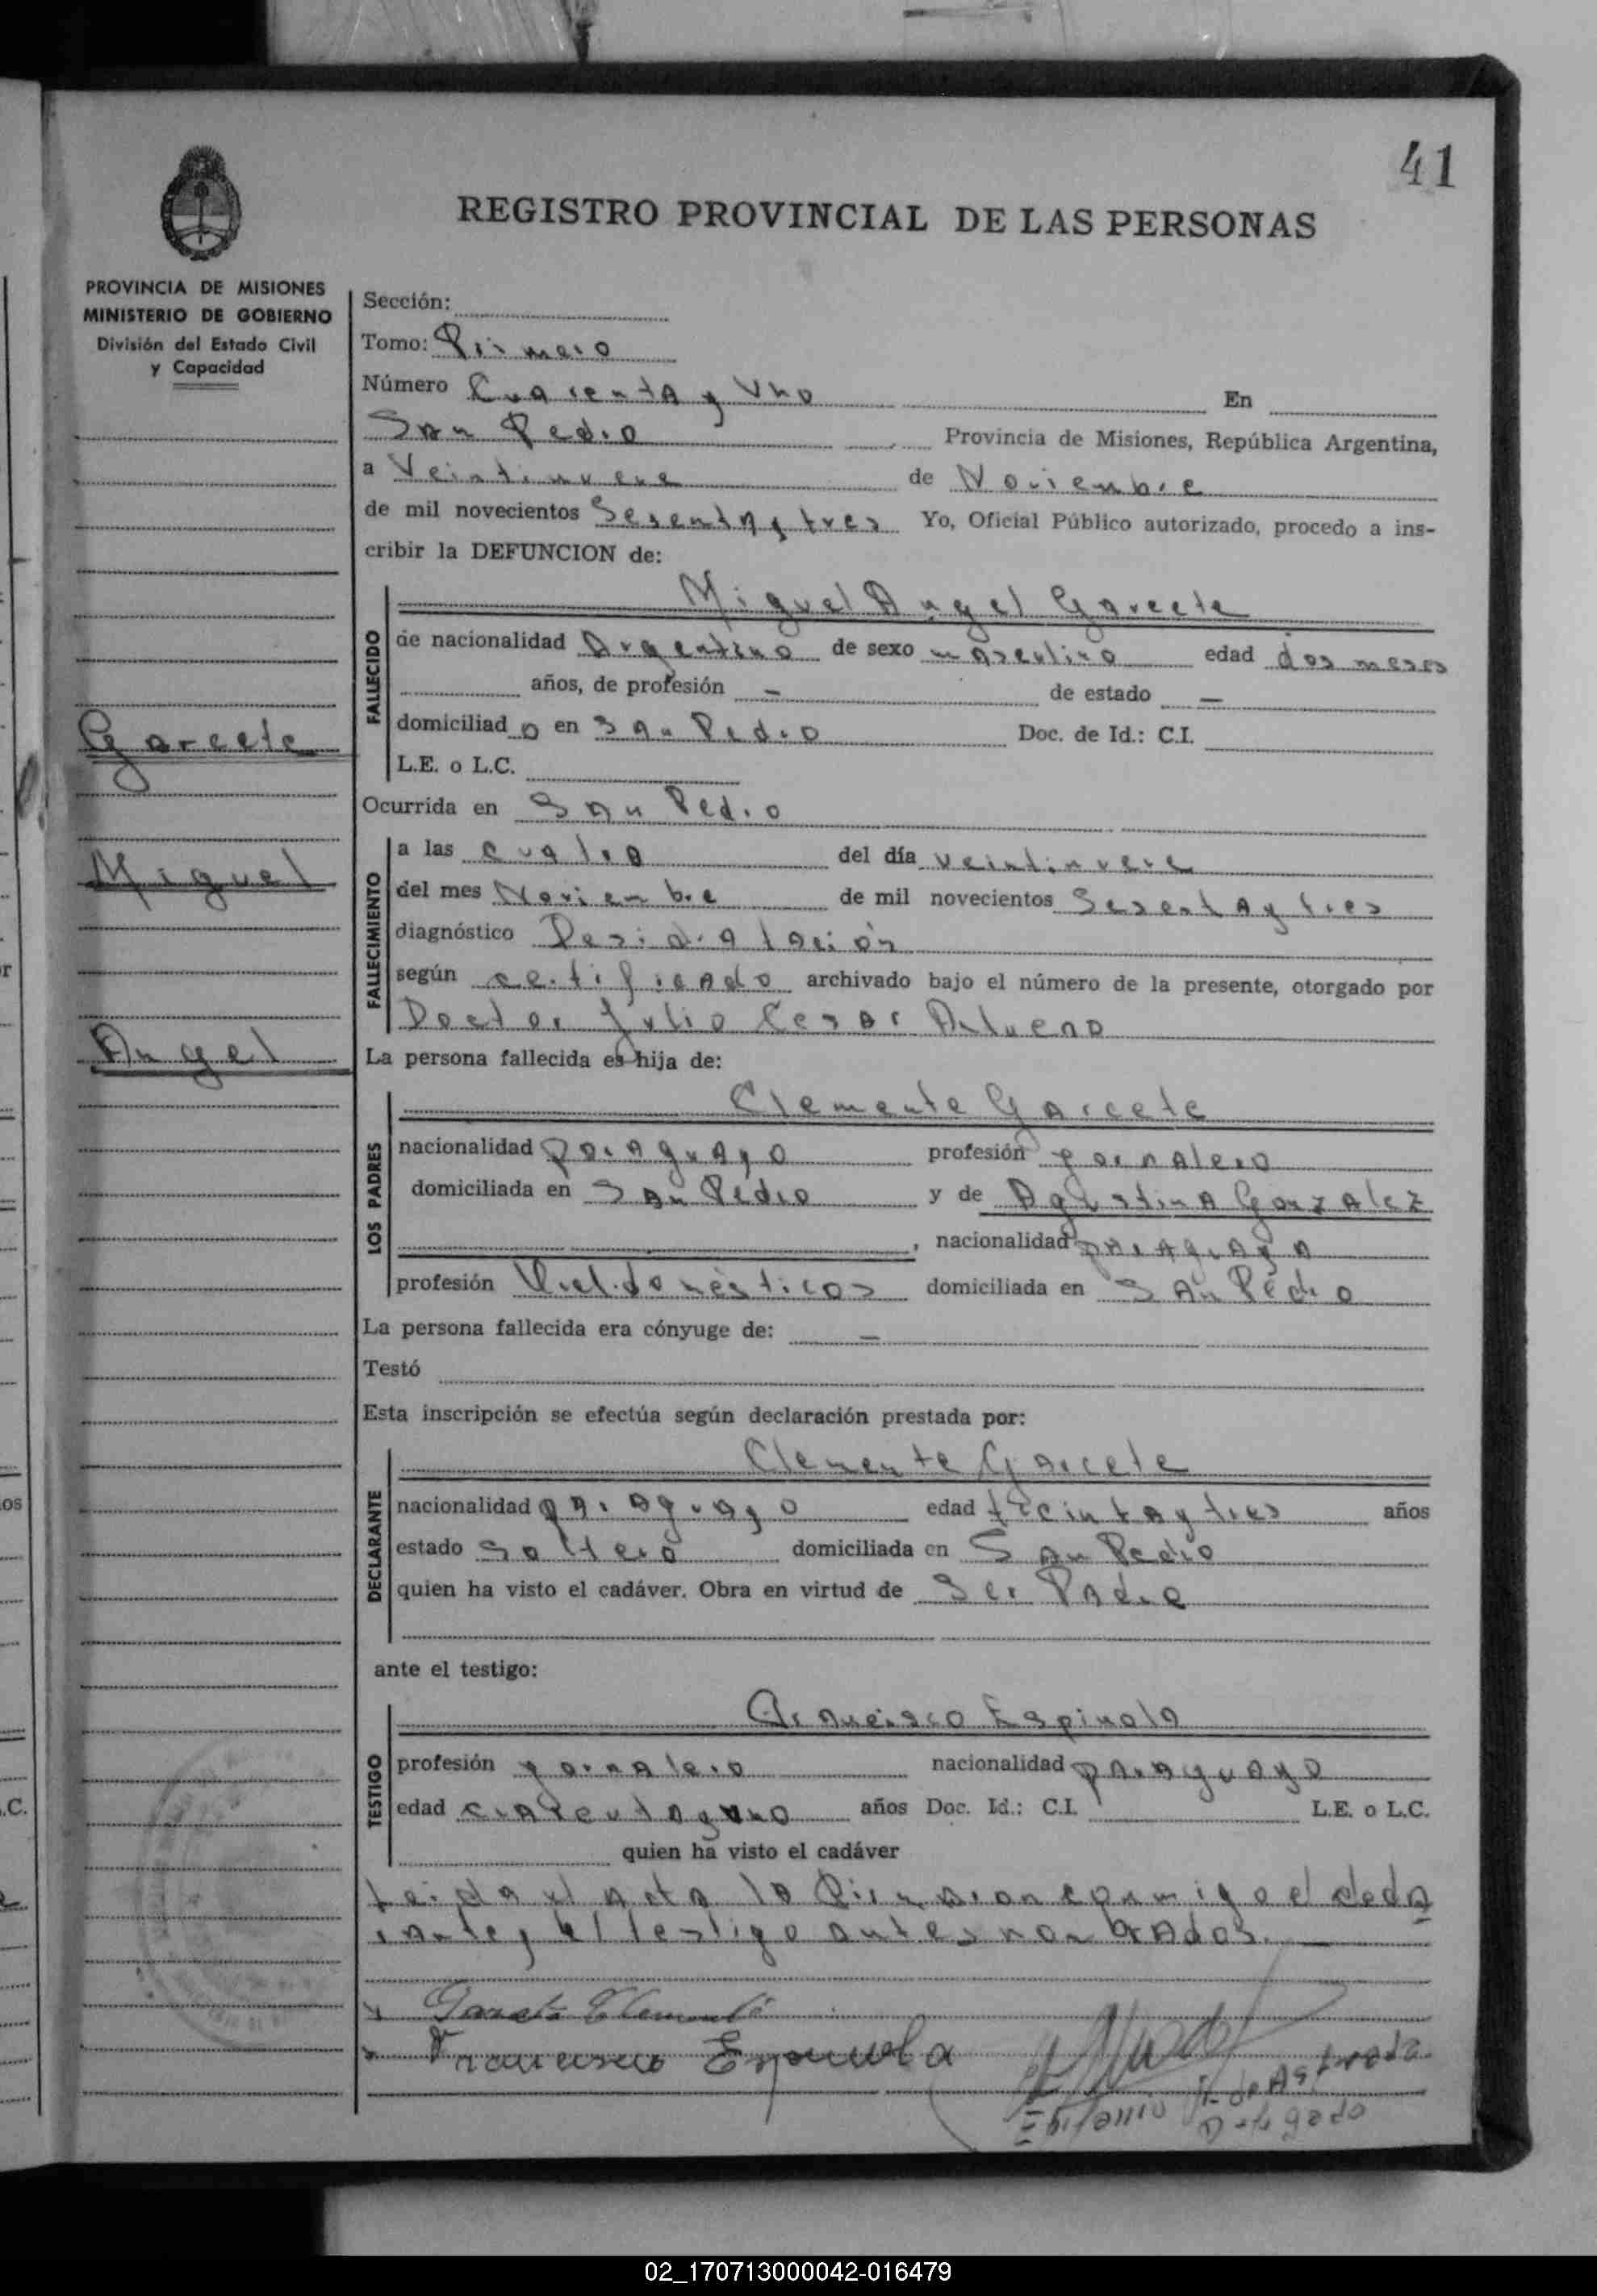 41
REGISTRO PROVINCIAL DE LAS PERSONAS
PROVINCIA DE MISIONES
MINISTERIO DE GOBIERNO
División del Estado Civil
y Capacidad
Garcete
Miguel
Angel
Sección:
Tomo: Primero
Número Cuarenta y Uno En
San Pedro Provincia de Misiones, República Argentina,
a Veintinueve de Noviembre
de mil novecientos Sesenta y tres Yo, Oficial Público autorizado, procedo a ins-
cribir la DEFUNCION de:
Miguel Angel Garcete
FALLECIDO
de nacionalidad Argentino de sexo masculino edad dos meses
años, de profesión — de estado —
domiciliad o en San Pedro Doc. de Id.: C.I.
L.E. o L.C.
Ocurrida en San Pedro
FALLECIMIENTO
a las cuatro del día veintinueve
del mes Noviembre de mil novecientos Sesenta y tres
diagnóstico Desidratación
según certificado archivado bajo el número de la presente, otorgado por
Doctor Julio Cesar
La persona fallecida es hija de:
LOS PADRES
Clemente Garcete
nacionalidad paraguayo profesión jornalero
domiciliada en San Pedro y de Agustina Gonzalez
, nacionalidad paraguaya
profesión domiciliada en San Pedro
La persona fallecida era cónyuge de: —
Testó
Esta inscripción se efectúa según declaración prestada por:
DECLARANTE
Clemente Garcete
nacionalidad paraguayo edad treinta y tres años
estado soltero domiciliada en San Pedro
quien ha visto el cadáver. Obra en virtud de Ser Padre
ante el testigo:
TESTIGO
Francisco Espinola
profesión jornalero nacionalidad paraguayo
edad cuarenta y uno años Doc. Id.: C.I. L.E. o L.C.
quien ha visto el cadáver
Leida el Acta la Firmaron conmigo el decla
rante y el Testigo antes nombrados.
Garcete Clemente
Francisco Espinola
Epifanio F. de Astrada
Delegado
02_170713000042-016479